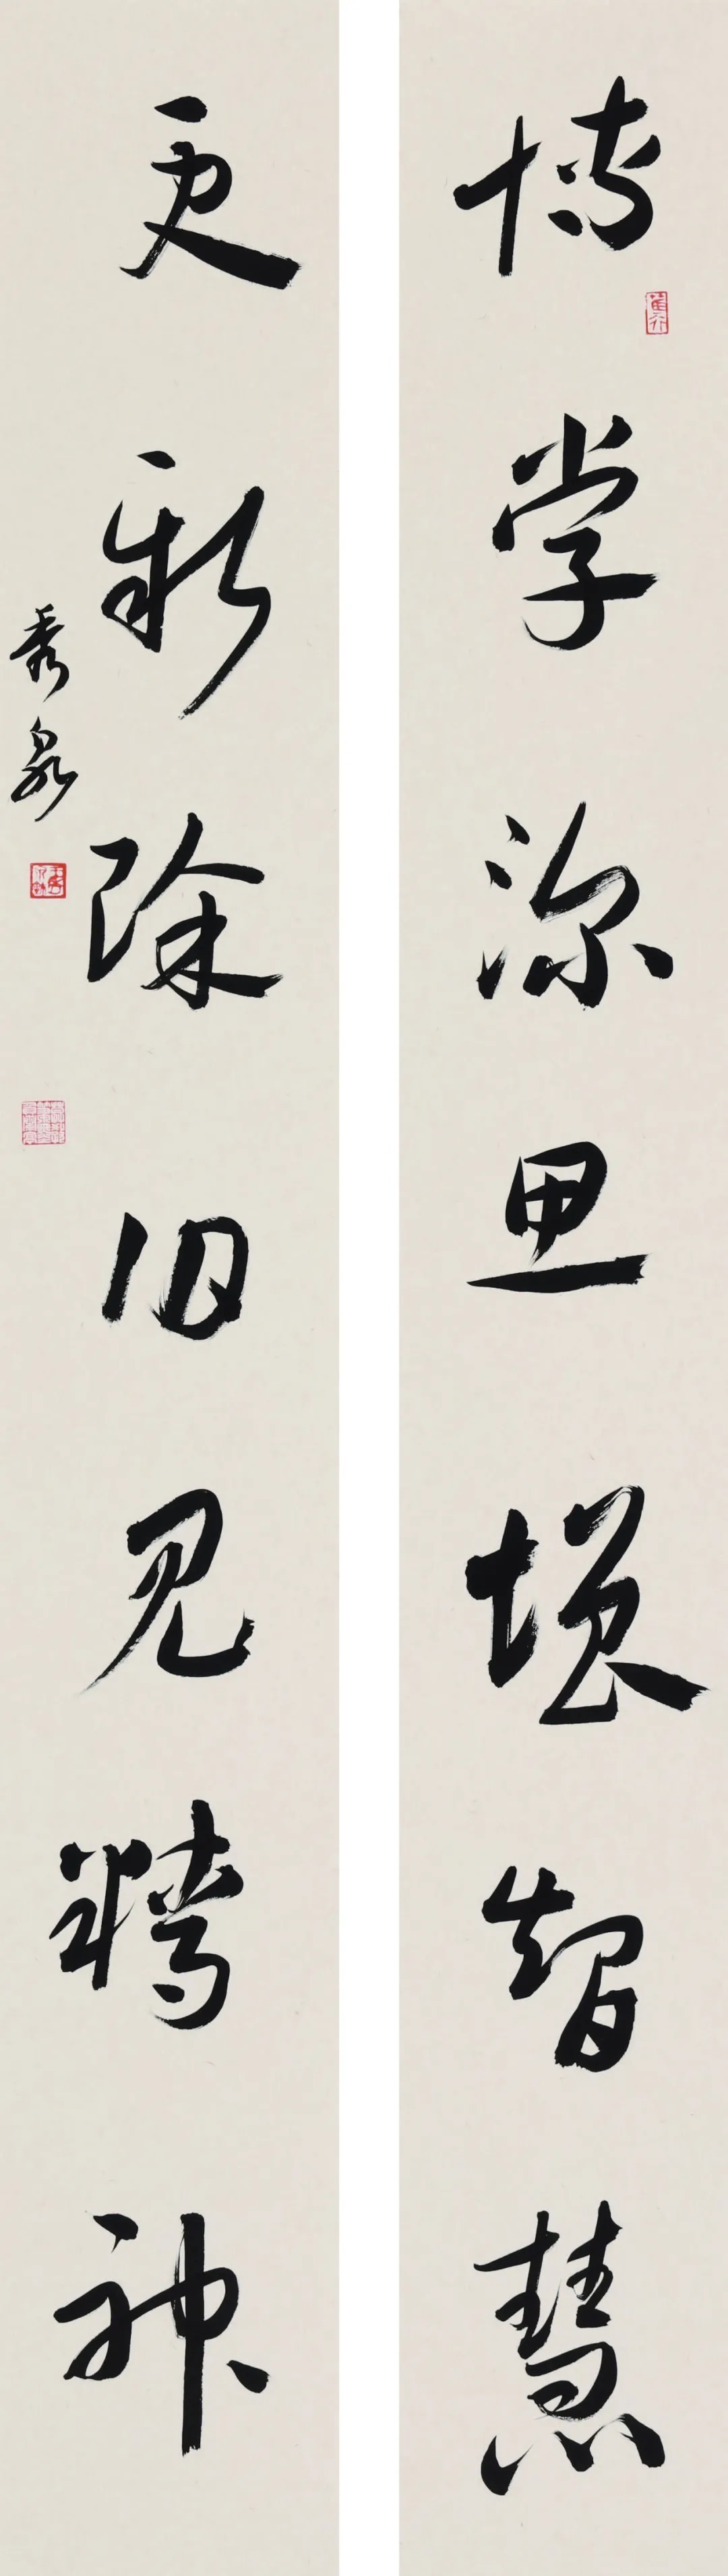 博学深思增智慧
更新除旧见精神
秀泉